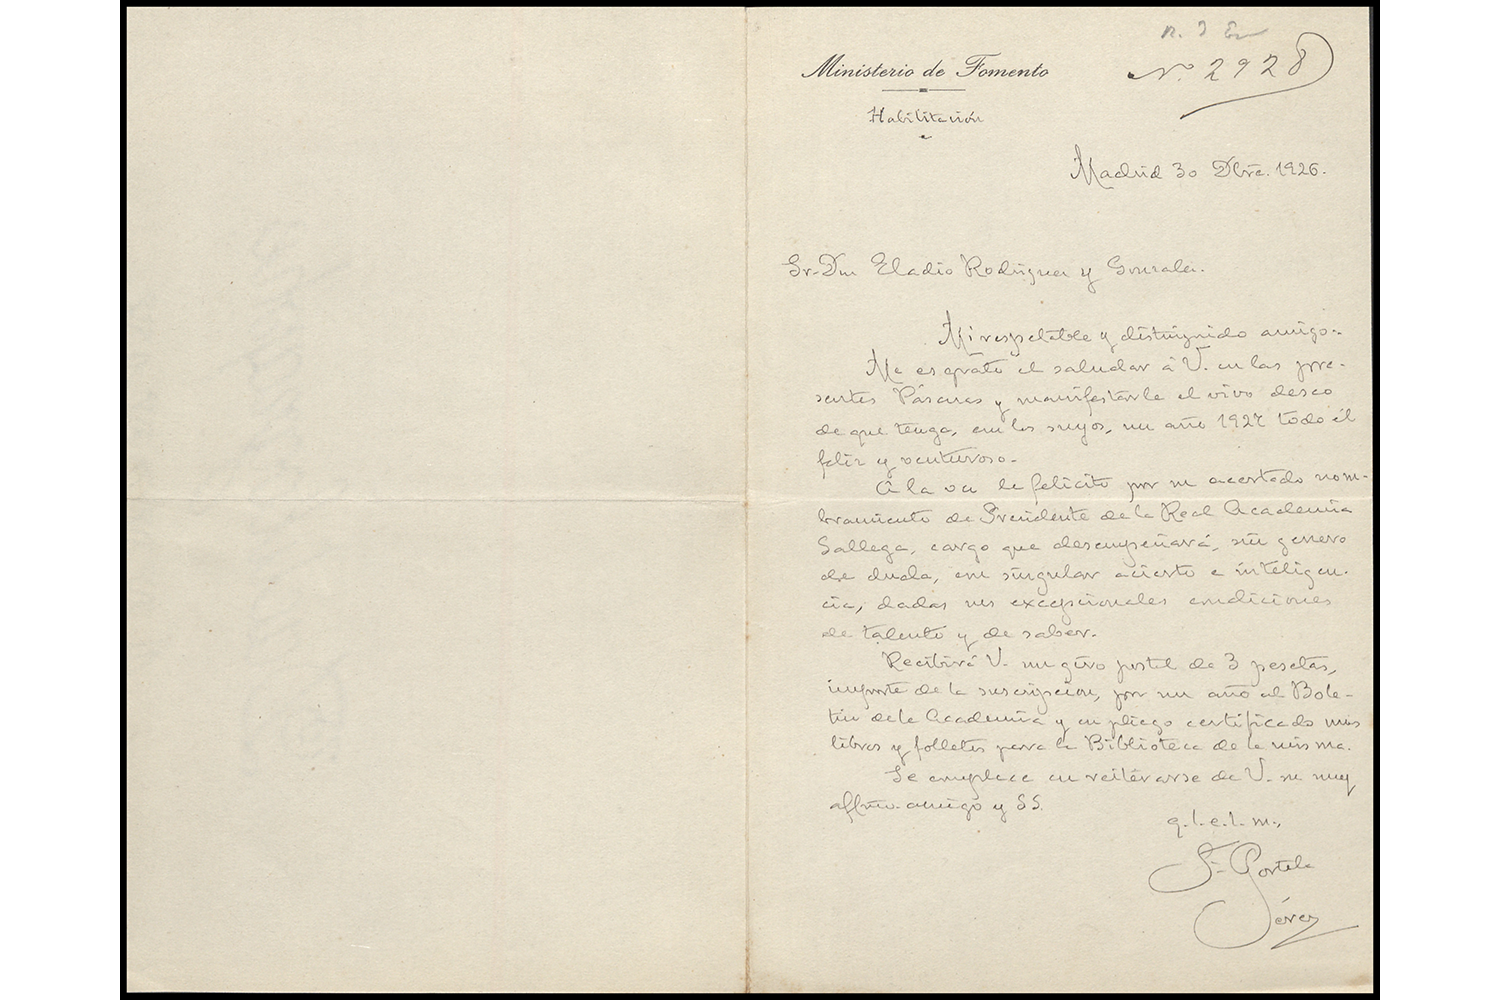 Nº 2928
Ministerio de Fomento
Habilitación
Madrid 30 Dbre. 1926.
Sr. Don Eladio Rodríguez y González.
Mi respetable y distinguido amigo:
Me es grato el saludar á V. en las pre-
sentes Páscuas y manifestarle el vivo deseo
de que tenga, con los suyos, un año 1927 todo él
feliz y venturoso.
Á la vez le felicito por su acertado nom-
bramiento de Presidente de la Real Academia
Gallega, cargo que desempeñará, sin genero
de duda, con singular acierto e inteligen-
cia, dadas sus excepcionales condiciones
de talento y de saber.
Recibirá V. un giro postal de 3 pesetas,
importe de la suscripción, por un año al Bole-
tín de la Academia y en pliego certificado mis
libros y folletos para la Biblioteca de la misma.
Se complace en reiterarse de V. su muy
affmo. amigo y SS.
q.l.e.l.m.,
Portela
Pérez